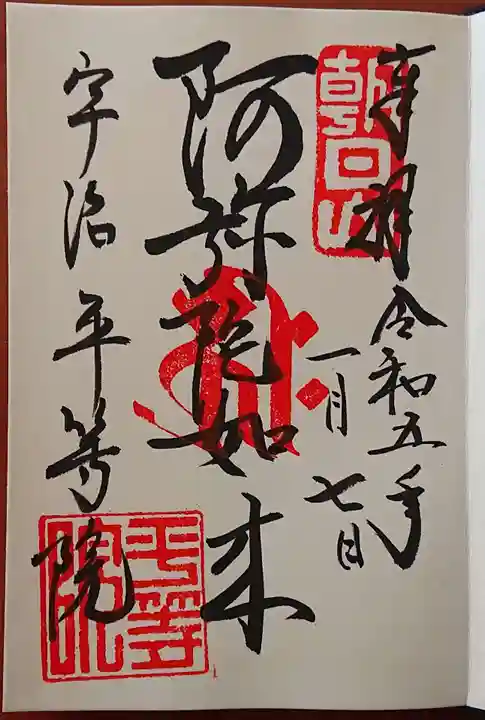 奉拝
朝日山
令和五年
一月七日
阿弥陀如来
宇治平等院
平等院